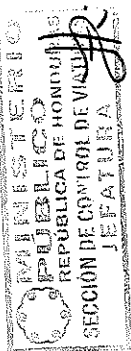 MINISTERIO
PUBLICO
REPUBLICA DE HONDURAS
SECCIÓN DE CONTROL DE VIATI
JEFATURA